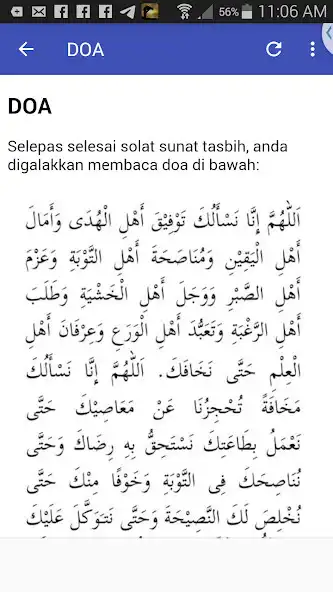 56% 11:06 AM
DOA
DOA
Selepas selesai solat sunat tasbih, anda
digalakkan membaca doa di bawah:
اَللّٰهُمَّ إِنَّا نَسْأَلُكَ تَوْفِيْقَ أَهْلِ الْهُدَى وَأَمَالَ
أَهْلِ الْيَقِيْنِ وَمُنَاصَحَةَ أَهْلِ التَّوْبَةِ وَعَزْمَ
أَهْلِ الصَّبْرِ وَوَجَلَ أَهْلِ الْخَشْيَةِ وَطَلَبَ
أَهْلِ الرَّغْبَةِ وَتَعَبُّدَ أَهْلِ الْوَرَعِ وَعِرْفَانَ أَهْلِ
الْعِلْمِ حَتَّى نَخَافَكَ. اَللّٰهُمَّ إِنَّا نَسْأَلُكَ
مَخَافَةً تُحْجِزُنَا عَنْ مَعَاصِيْكَ حَتَّى
نَعْمَلُ بِطَاعَتِكَ نَسْتَحِقُّ بِهِ رِضَاكَ وَحَتَّى
نُنَاصِحَكَ فِى التَّوْبَةِ وَخَوْفًا مِنْكَ حَتَّى
نُخْلِصَ لَكَ النَّصِيْحَةَ وَحَتَّى نَتَوَكَّلَ عَلَيْكَ